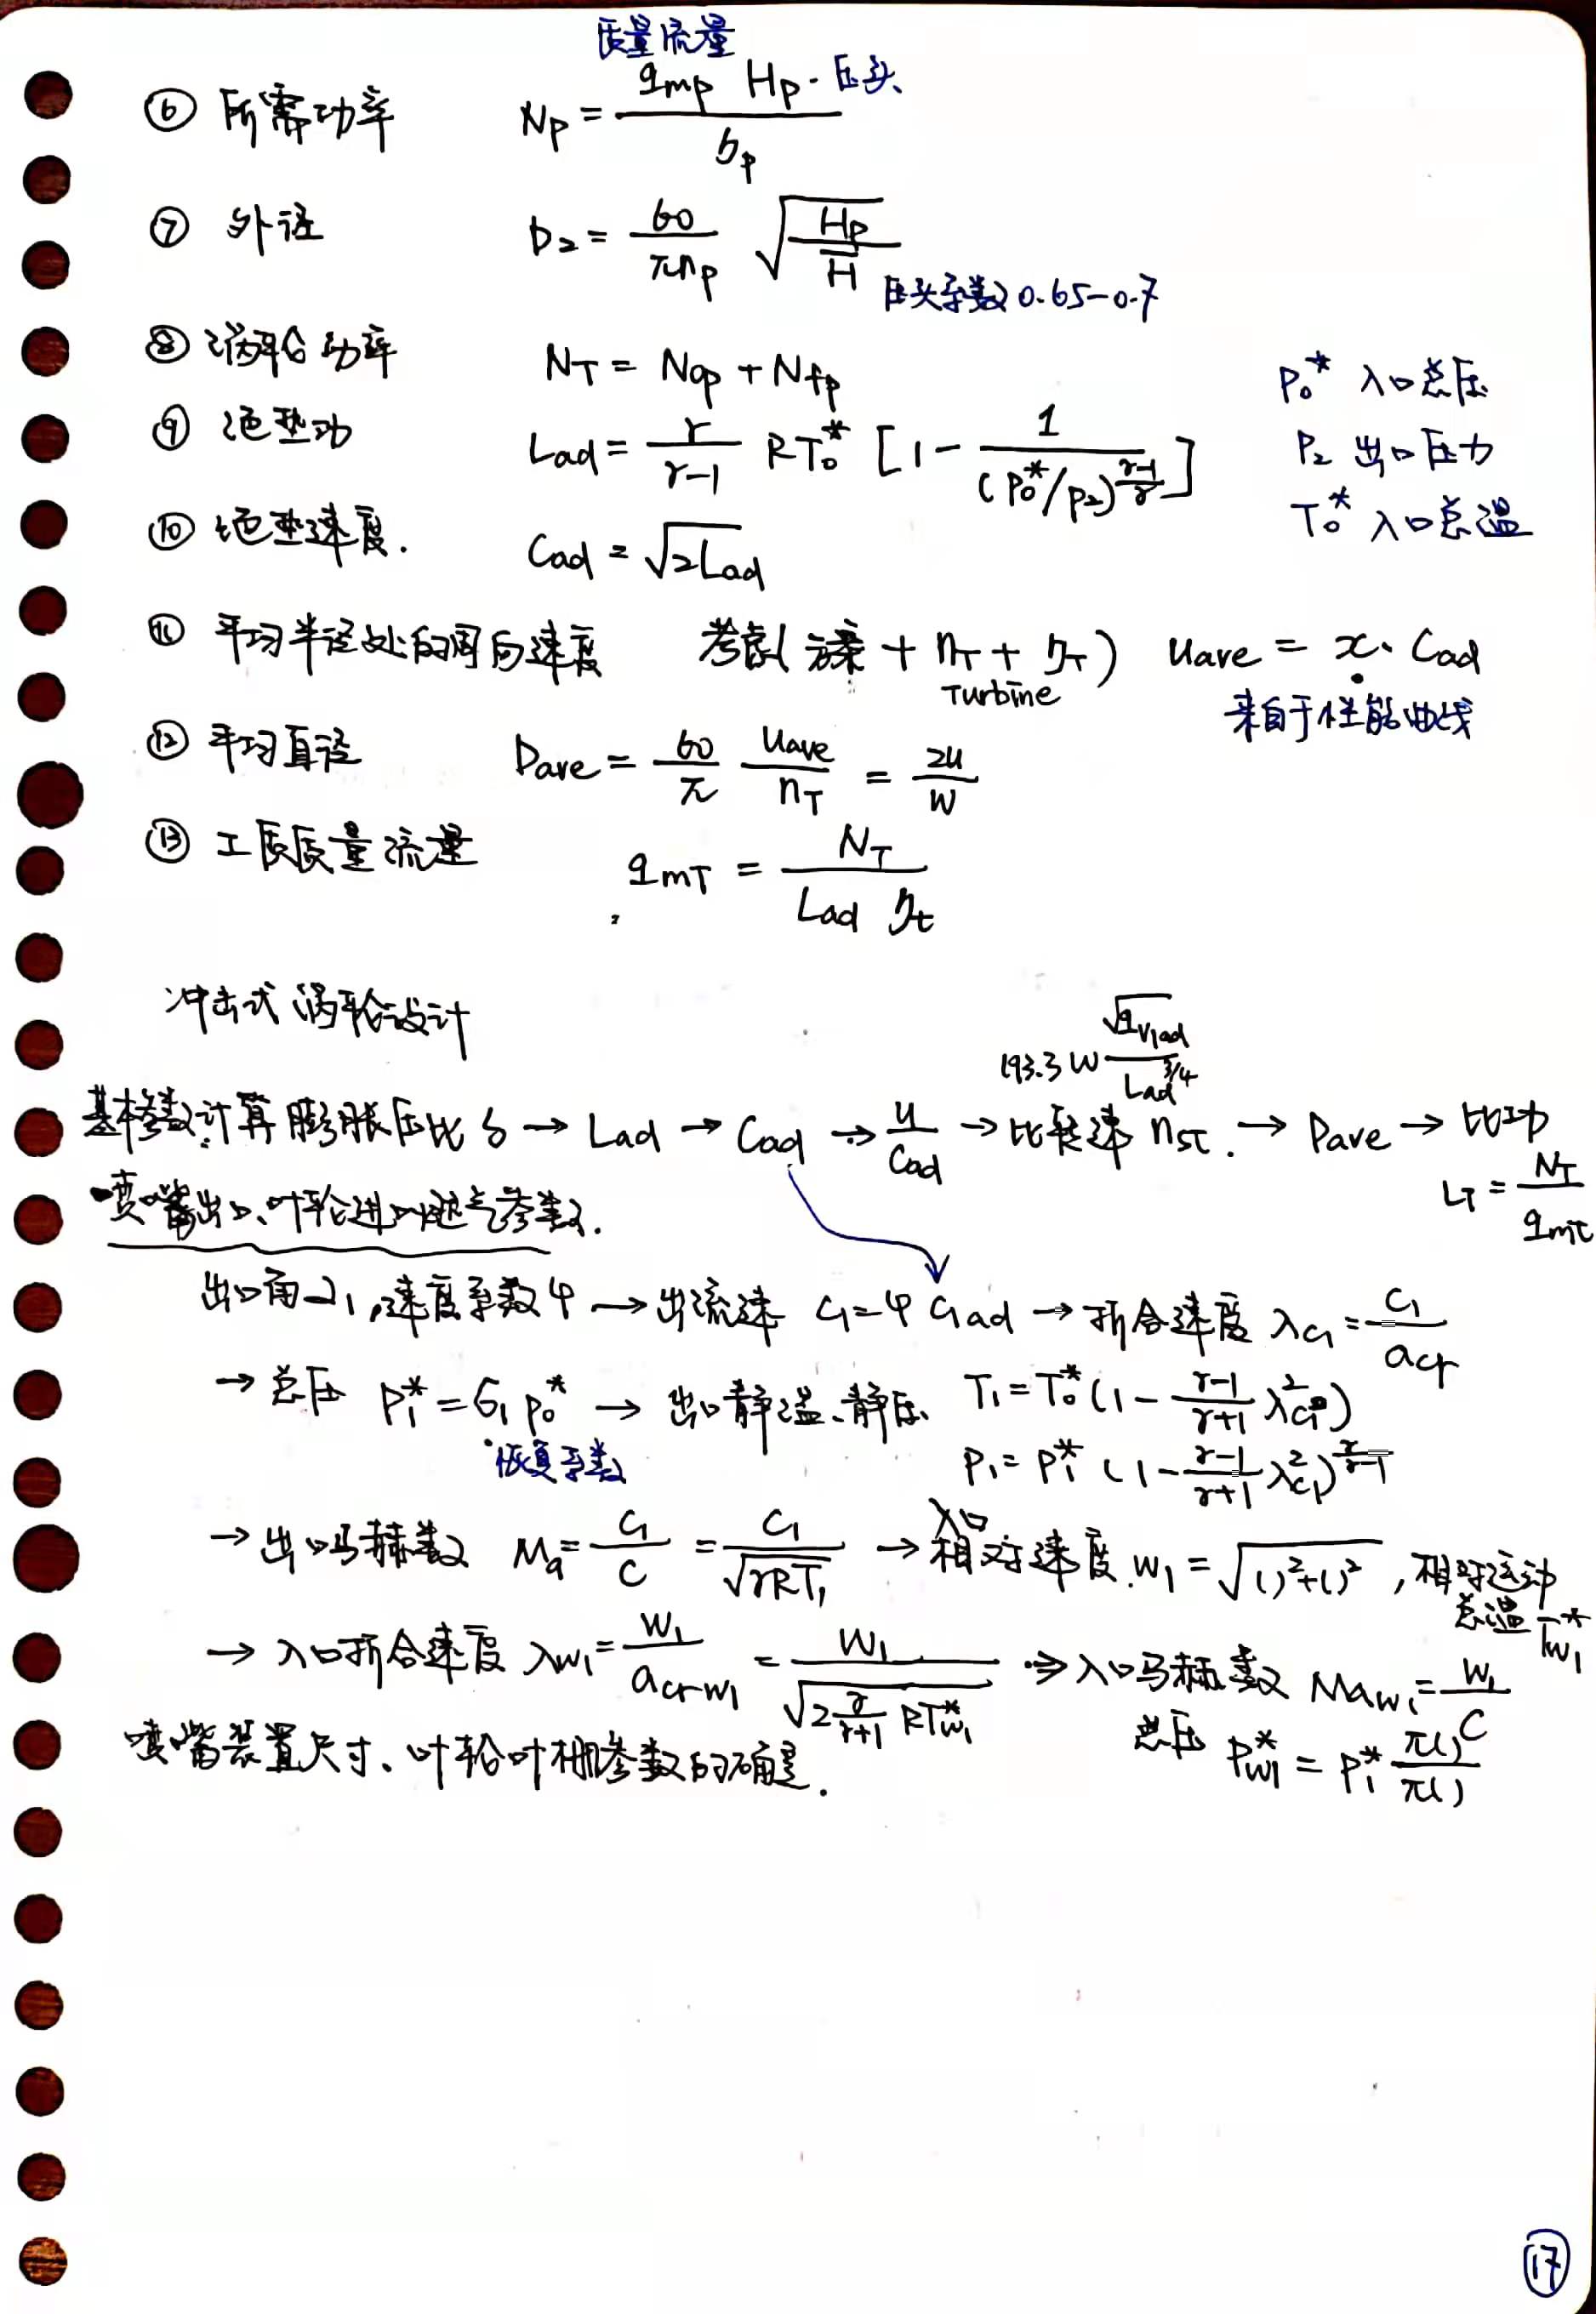 质量流量
⑥ 所需功率 Np = qmp Hp · 压头 / ηp
⑦ 外径 D₂ = 60/πnp √(Hp/H̄) 压头系数 0.65-0.7
⑧ 涡轮功率 NT = Nop + Nfp
P₀* 入口总压
⑨ 绝热功 Lad = γ/(γ-1) RT₀* [1 - 1/(P₀*/P₂)^((γ-1)/γ)]
P₂ 出口压力
T₀* 入口总温
⑩ 绝热速度. Cad = √(2Lad)
⑪ 平均半径处的周向速度 考虑(方案 + nT + ηT) uave = x · Cad
Turbine
来自于性能曲线
⑫ 平均直径 Dave = 60/π uave/nT = 2u/w
⑬ 工质质量流量 qmT = NT/(Lad ηt)
冲击式涡轮设计
193.3 W √qv1ad / Lad^(3/4)
基本参数计算 膨胀压比 δ → Lad → Cad → u/Cad → 比转速 nsT. → Dave → 比功
LT = NT/qmT
喷嘴出口、叶轮进口燃气参数.
出口角 α₁, 速度系数 φ → 出流速 C₁ = φ C₁ad → 折合速度 λc₁ = C₁/acr
→ 总压 P₁* = σ₁ P₀* → 出口静温、静压 T₁ = T₀* (1 - (γ-1)/(γ+1) λ²c₁)
恢复系数
P₁ = P₁* (1 - (γ-1)/(γ+1) λ²c₁)^(γ/(γ-1))
→ 出口马赫数 Ma = C₁/C = C₁/√(γRT₁) → 入口相对速度 w₁ = √(()²+()²), 相对运动
总温 T*w₁
→ 入口折合速度 λw₁ = w₁/acrw₁ = w₁/√(2 γ/(γ+1) RT*w₁) → 入口马赫数 Maw₁ = w₁/C
总压 P*w₁ = P₁* π()/π()
喷嘴装置尺寸、叶轮叶栅参数的确定.
17